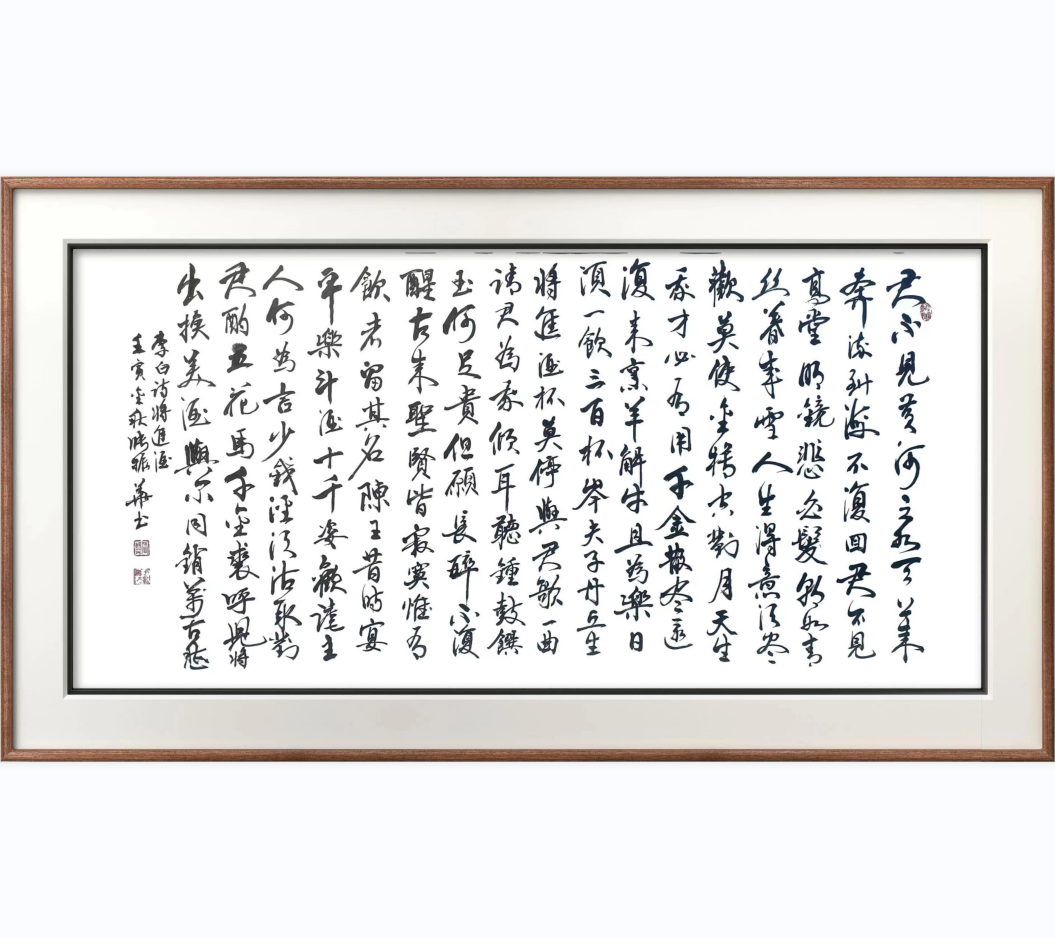 君不見黄河之水天上来
奔流到海不復回君不見
高堂明鏡悲白髮朝如青
丝暮成雪人生得意须尽
歡莫使金樽空對月天生
我才必有用千金散尽還
復来烹羊解牛且為樂
須一飲三百杯岑夫子丹丘生
将進酒杯莫停與君歌一曲
請君為我傾耳聽鍾鼓饌
玉何足貴但願長醉不復
醒古来聖賢皆寂寞惟有
飲者留其名陳王昔時宴
平樂斗酒十千恣歡謔主
人何為言少錢逕須沽取對
君酌五花馬千金裘呼兒将
出换美酒與尔同銷萬古愁
李白詩将進酒
壬寅金秋張振華书